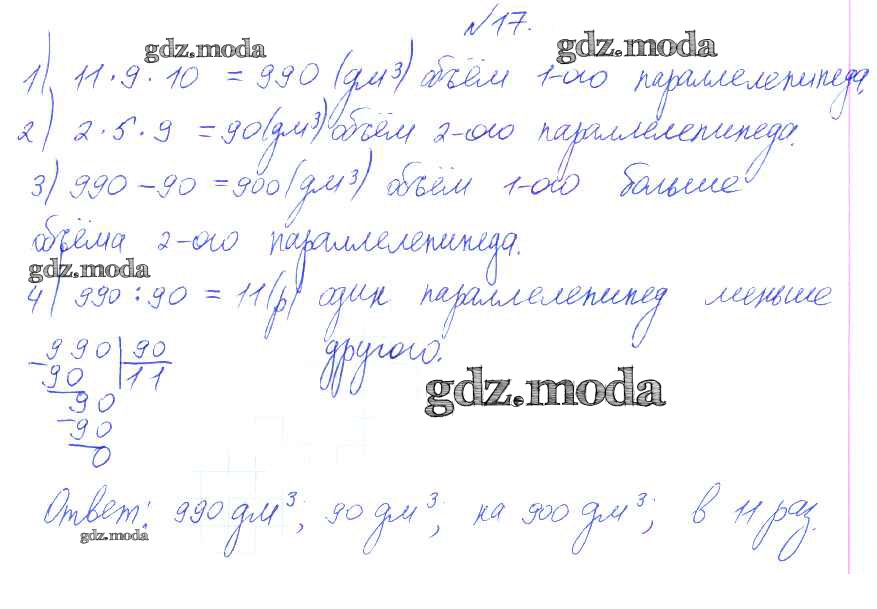 №17.
gdz.moda gdz.moda
1) 11·9·10 = 990 (дм³) объём 1-ого параллелепипеда,
2) 2·5·9 = 90(дм³) объём 2-ого параллелепипеда.
3) 990 – 90 = 900(дм³) объём 1-ого больше
объёма 2-ого параллелепипеда.
gdz.moda
4) 990 : 90 = 11(р) один параллелепипед меньше
другого.
990 | 90
- 90 11
90
- 90
0
gdz.moda
Ответ: 990 дм³; 90 дм³; на 900 дм³; в 11 раз.
gdz.moda